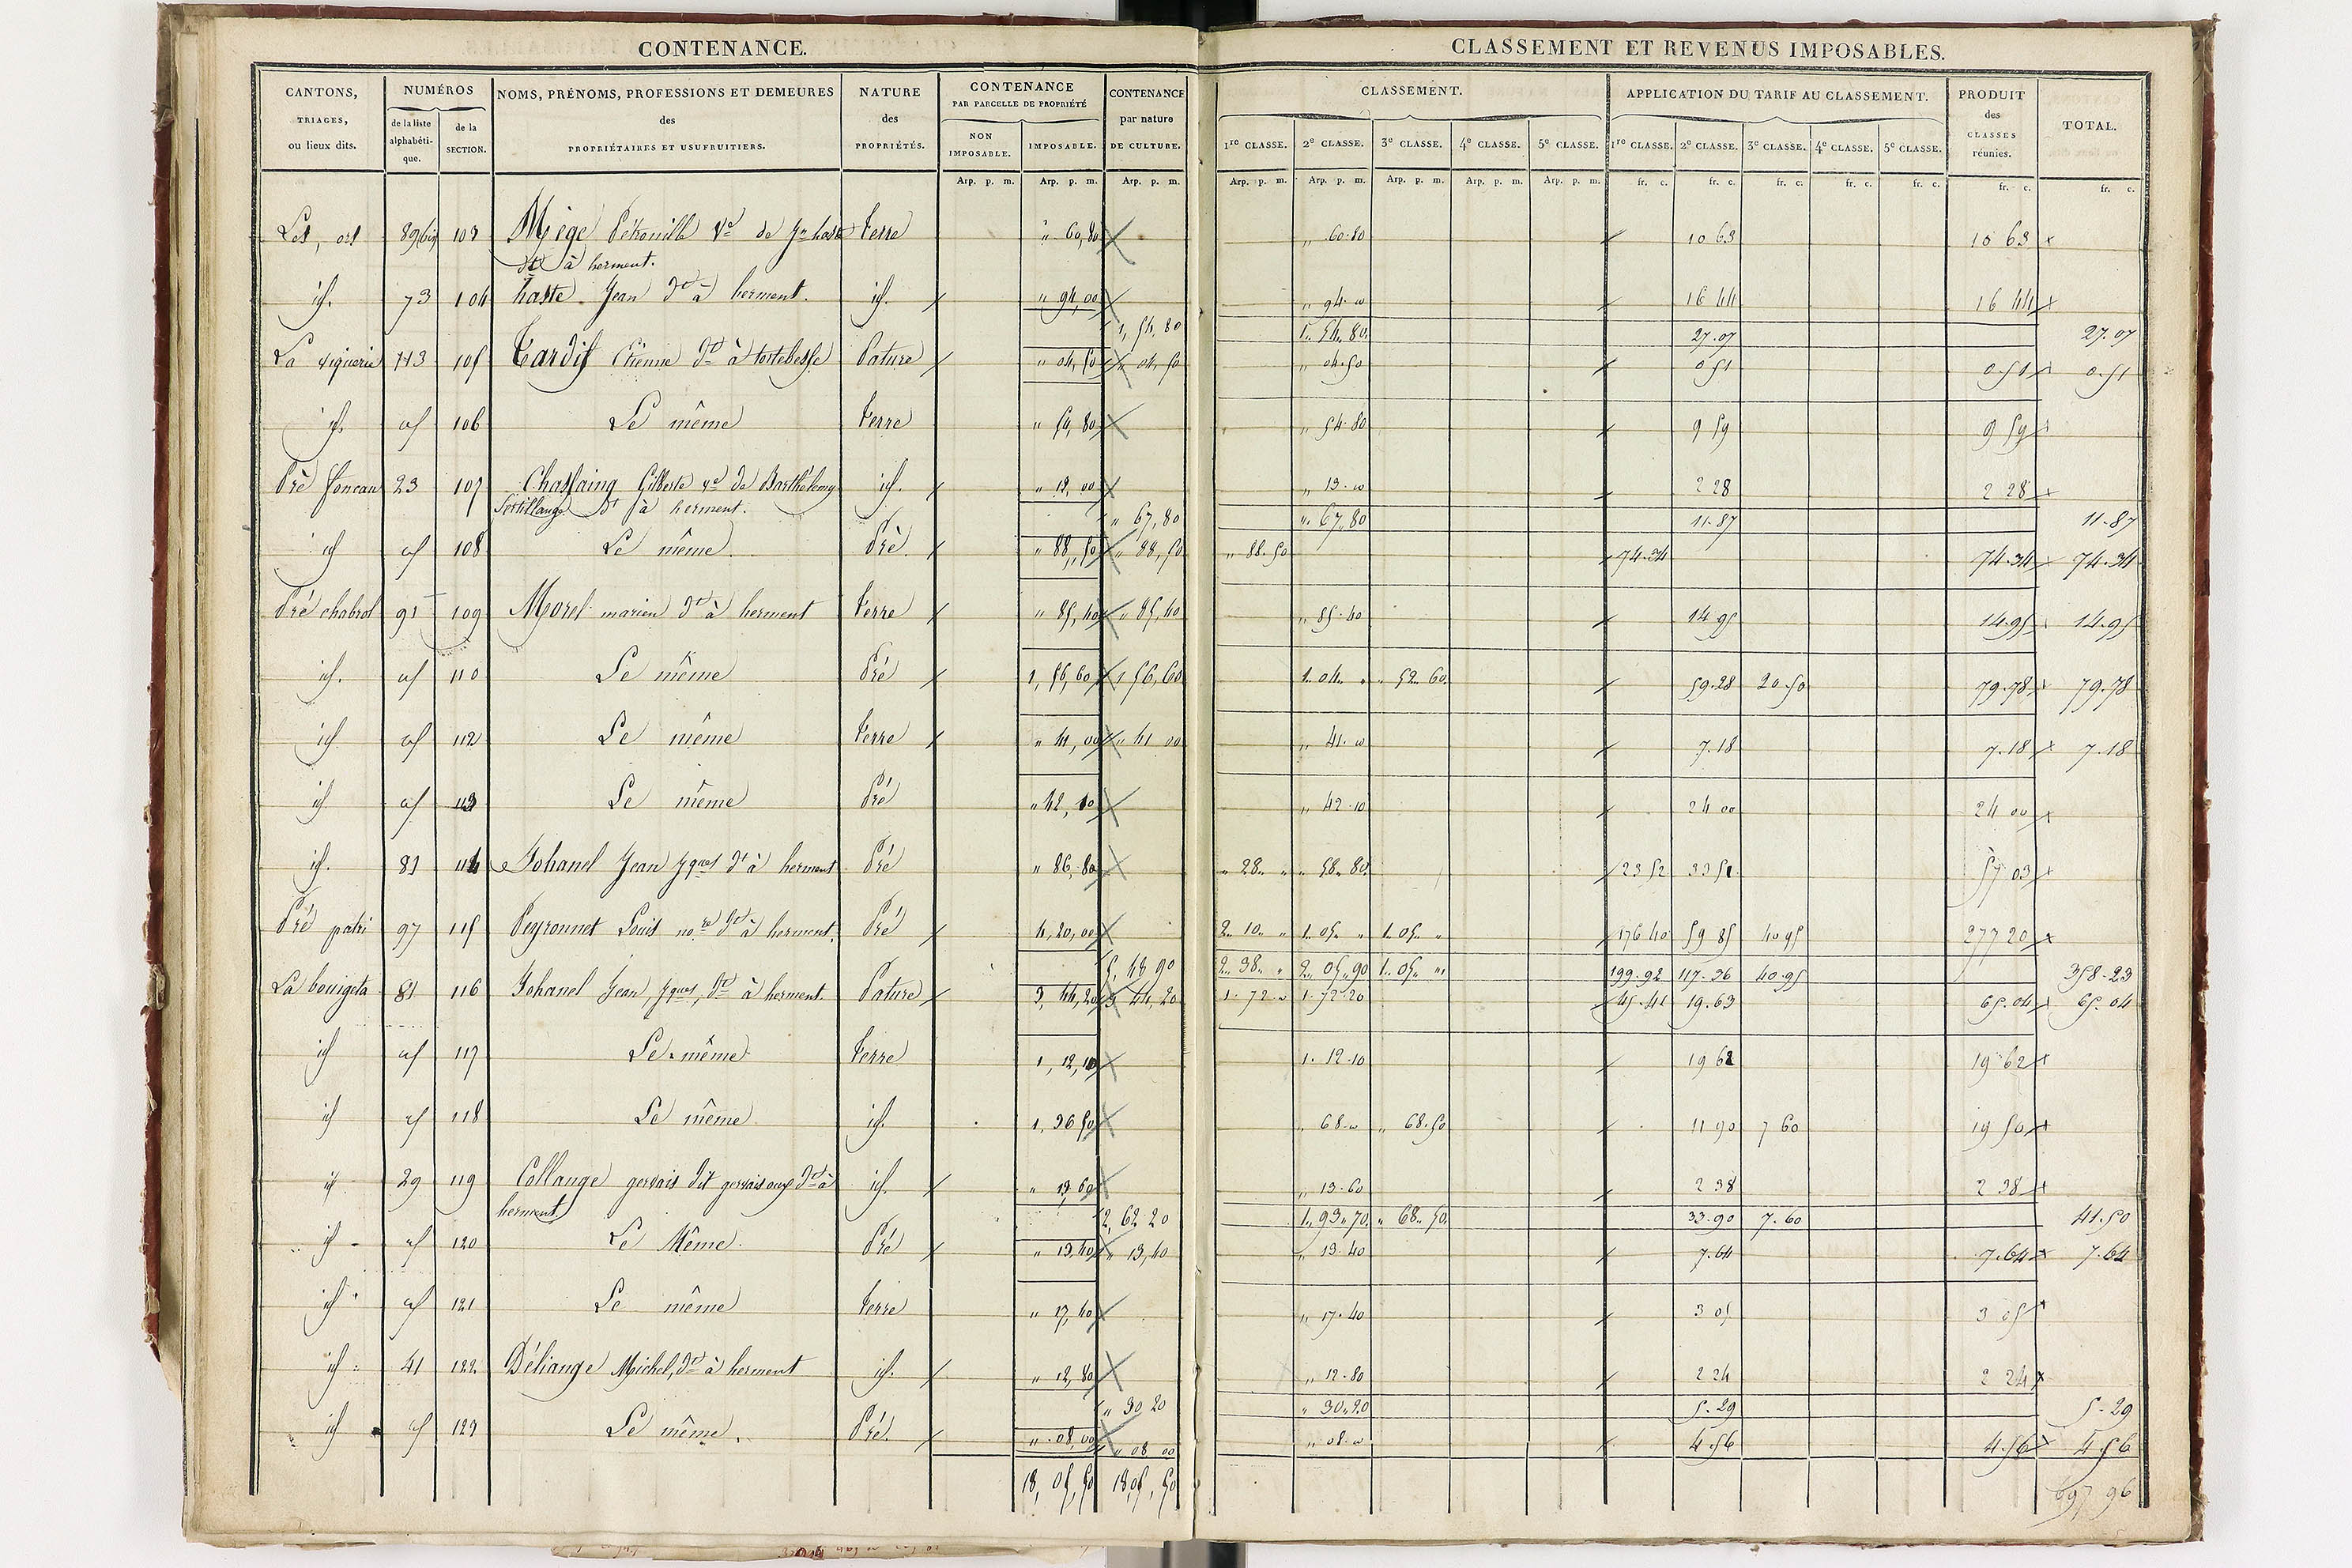 CONTENANCE.
CANTONS, TRIAGES, ou lieux dits.
NUMÉROS de la liste alphabétique. de la SECTION.
NOMS, PRÉNOMS, PROFESSIONS ET DEMEURES des PROPRIÉTAIRES ET USUFRUITIERS.
NATURE des PROPRIÉTÉS.
CONTENANCE PAR PARCELLE DE PROPRIÉTÉ NON IMPOSABLE. IMPOSABLE.
CONTENANCE par nature DE CULTURE.
Arp. p. m. Arp. p. m. Arp. p. m.
CLASSEMENT ET REVENUS IMPOSABLES.
CLASSEMENT.
1re CLASSE. 2e CLASSE. 3e CLASSE. 4e CLASSE. 5e CLASSE.
APPLICATION DU TARIF AU CLASSEMENT.
1re CLASSE. 2e CLASSE. 3e CLASSE. 4e CLASSE. 5e CLASSE.
PRODUIT des CLASSES réunies.
TOTAL.
Arp. p. m. Arp. p. m. Arp. p. m. Arp. p. m. Arp. p. m. fr. c. fr. c. fr. c. fr. c. fr. c. fr. c. fr. c.
89bis 103 Mège Vve de Jn haste terre " 60,80 " 60.80 10 63 10 63
dt à herment.
id. 73 104 haste Jean dt à herment. id. " 94,00 " 94.00 16 44 16 44
1,54,80 1.54.80 27.07 27.07
La 113 105 Tardif Etienne dt à tortebesse Pature " 04,50 " 04,50 " 04.50 0 51 0 51 0.51
id. id 106 Le même terre " 54,80 " 54.80 9 59 9 59
Pré foncau 23 107 Chassaing Gilberte ve de Barthélemy id. " 13,00 " 13.00 2 28 2 28
dt à herment.
" 67,80 " 67.80 11.87 11.87
id id 108 Le même Pré " 88,50 " 88,50 " 88.50 74.34 74.34 74.34
Pré chabrol 91 109 Morel marien dt à herment terre " 85,40 " 85,40 " 85.40 14 95 14.95 14.95
id. id 110 Le même Pré 1,56,60 1 56,60 1.04. " " 52.60 59.28 20.50 79.78 79.78
id id 112 Le même terre " 41,00 " 41 00 " 41.00 7.18 7.18 7.18
id id 113 Le même Pré " 42,10 " 42.10 24 00 24 00
id. 81 114 Johanel Jean Jques dt à herment Pré " 86,80 " 28. " " 58.80 23 52 33 51 57 03
Pré patri 97 115 Peyronnet Louis nore dt à herment. Pré 4,20,00 2. 10. " 1. 05. " 1. 05. " 176 40 59 85 40 95 277 20
5, 48 90 2. 38. " 2. 05. 90 1. 05. " 199.92 117.36 40.95 358.23
La bouigeta 81 116 Johanel Jean Jques, dt à herment. Pature 3,44,20 3 44,20 1. 72 00 1. 72.20 45.41 19.63 65.04 65.04
id id 117 Le même terre 1,12,10 1. 12.10 19 62 19 62
id id 118 Le même id. 1,36 50 " 68.00 " 68.50 11 90 7 60 19 50
id 29 119 Collange gervais dit dt à id. " 13,60 " 13.60 2 38 2 38
herment.
2, 62 20 1. 93. 70 " 68. 50 33.90 7.60 41.50
id id 120 Le Même Pré " 13,40 " 13,40 " 13.40 7.64 7.64 7.64
id id 121 Le même terre " 17,40 " 17.40 3 05 3 05
id 41 122 Déliange Michel, dt à herment id. " 12,80 " 12.80 2 24 2 24
" 30 20 " 30.20 5.29 5.29
id id 123 Le même. Pré. " 08,00 " 08 00 " 08.00 4.56 4.56 4.56
18, 05,50 18,05,50 697 96